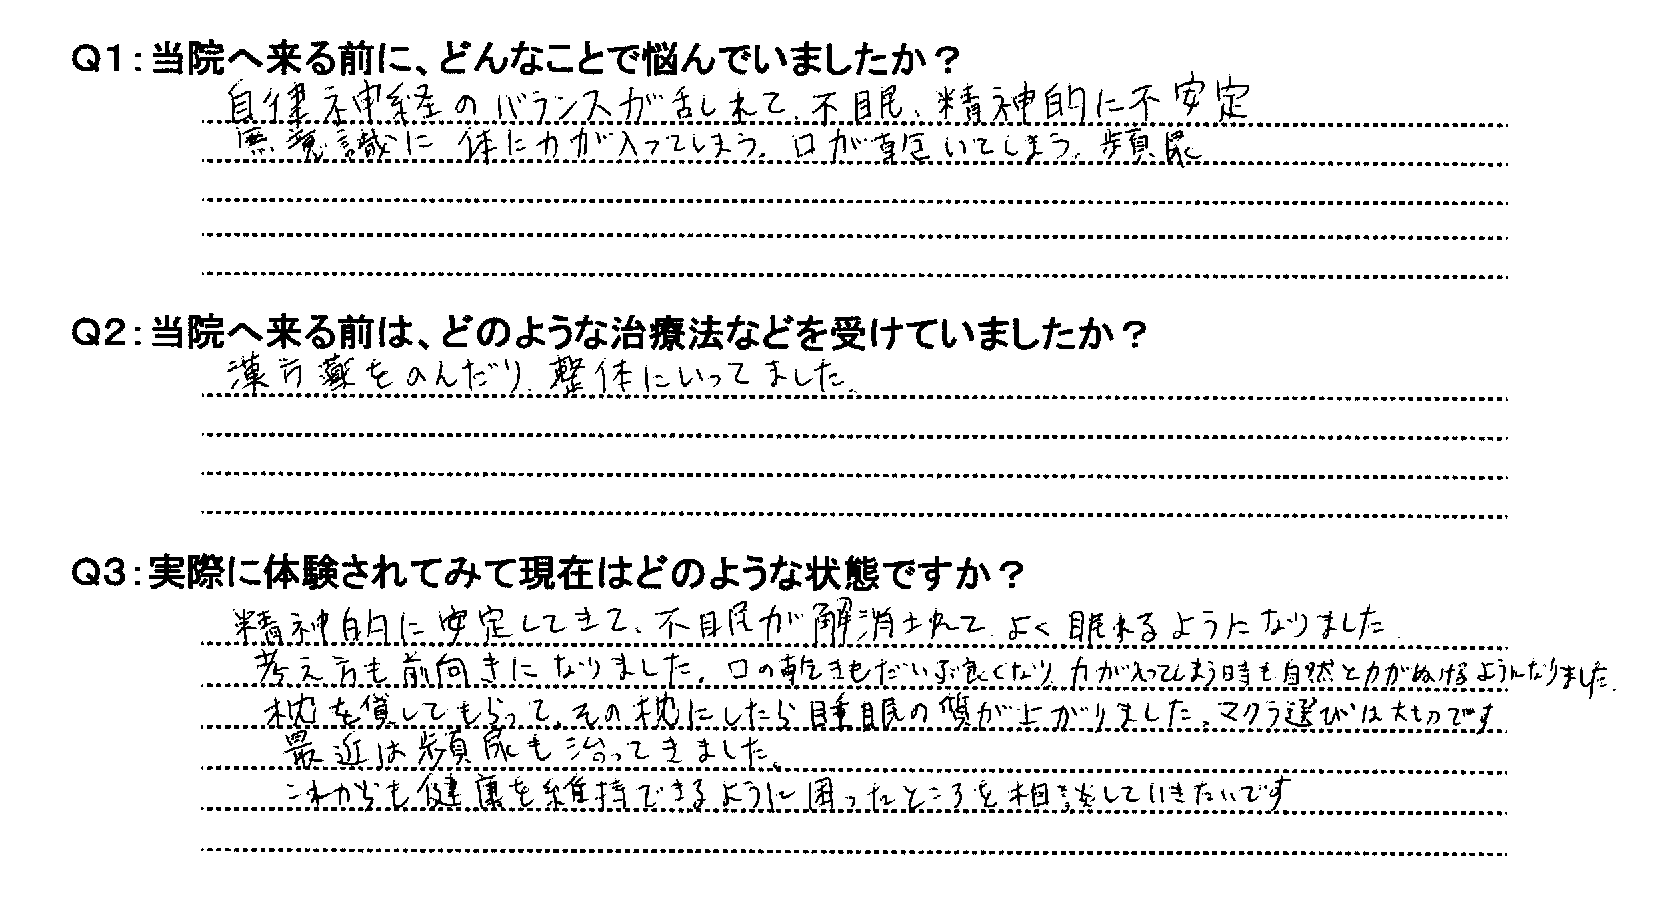 Q1:当院へ来る前に、どんなことで悩んでいましたか?
自律神経のバランスが乱れて、不眠、精神的に不安定
無意識に体に力が入ってしまう。口が乾いてしまう。頻尿
Q2:当院へ来る前は、どのような治療法などを受けていましたか?
漢方薬をのんだり、整体にいってました。
Q3:実際に体験されてみて現在はどのような状態ですか?
精神的に安定してきて、不眠が解消されて、よく眠れるようになりました。
考え方も前向きになりました。口の乾きもだいぶ良くなり、力が入ってしまう時も自然と力がぬけるようになりました。
枕を貸してもらって、その枕にしたら睡眠の質が上がりました。マクラ選びは大切です
最近は頻尿も治ってきました。
これからも健康を維持できるように困ったところを相談していきたいです